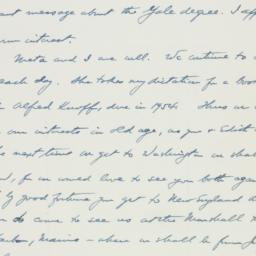 message about the Yale degree. I
interest.
Meta and I are well. We continue to
each day. She takes my dictation for a book
Alfred Knopf, due in 1954. Thus
our interests in old age, as you & Edith
next time we get to Washington we shall
for we would love to see you both
good fortune you get to New England
do come to see us at the Marshall
Harbor, Maine - where we shall be from